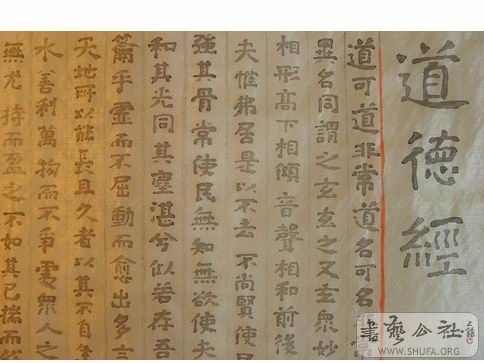 道德經
道可道非常道名可名
異名同謂之玄玄之又玄衆妙
相形高下相傾音聲相和前後
夫惟弗居是以不去不尚賢使民
強其骨常使民無知無欲使夫
和其光同其塵湛兮似若存吾
籥乎虛而不屈動而愈出多言
天地所以能長且久者以其不自
水善利萬物而不爭處衆人之
無尤持而盈之不如其已揣而
書藝公社
WWW.SHUFA.ORG